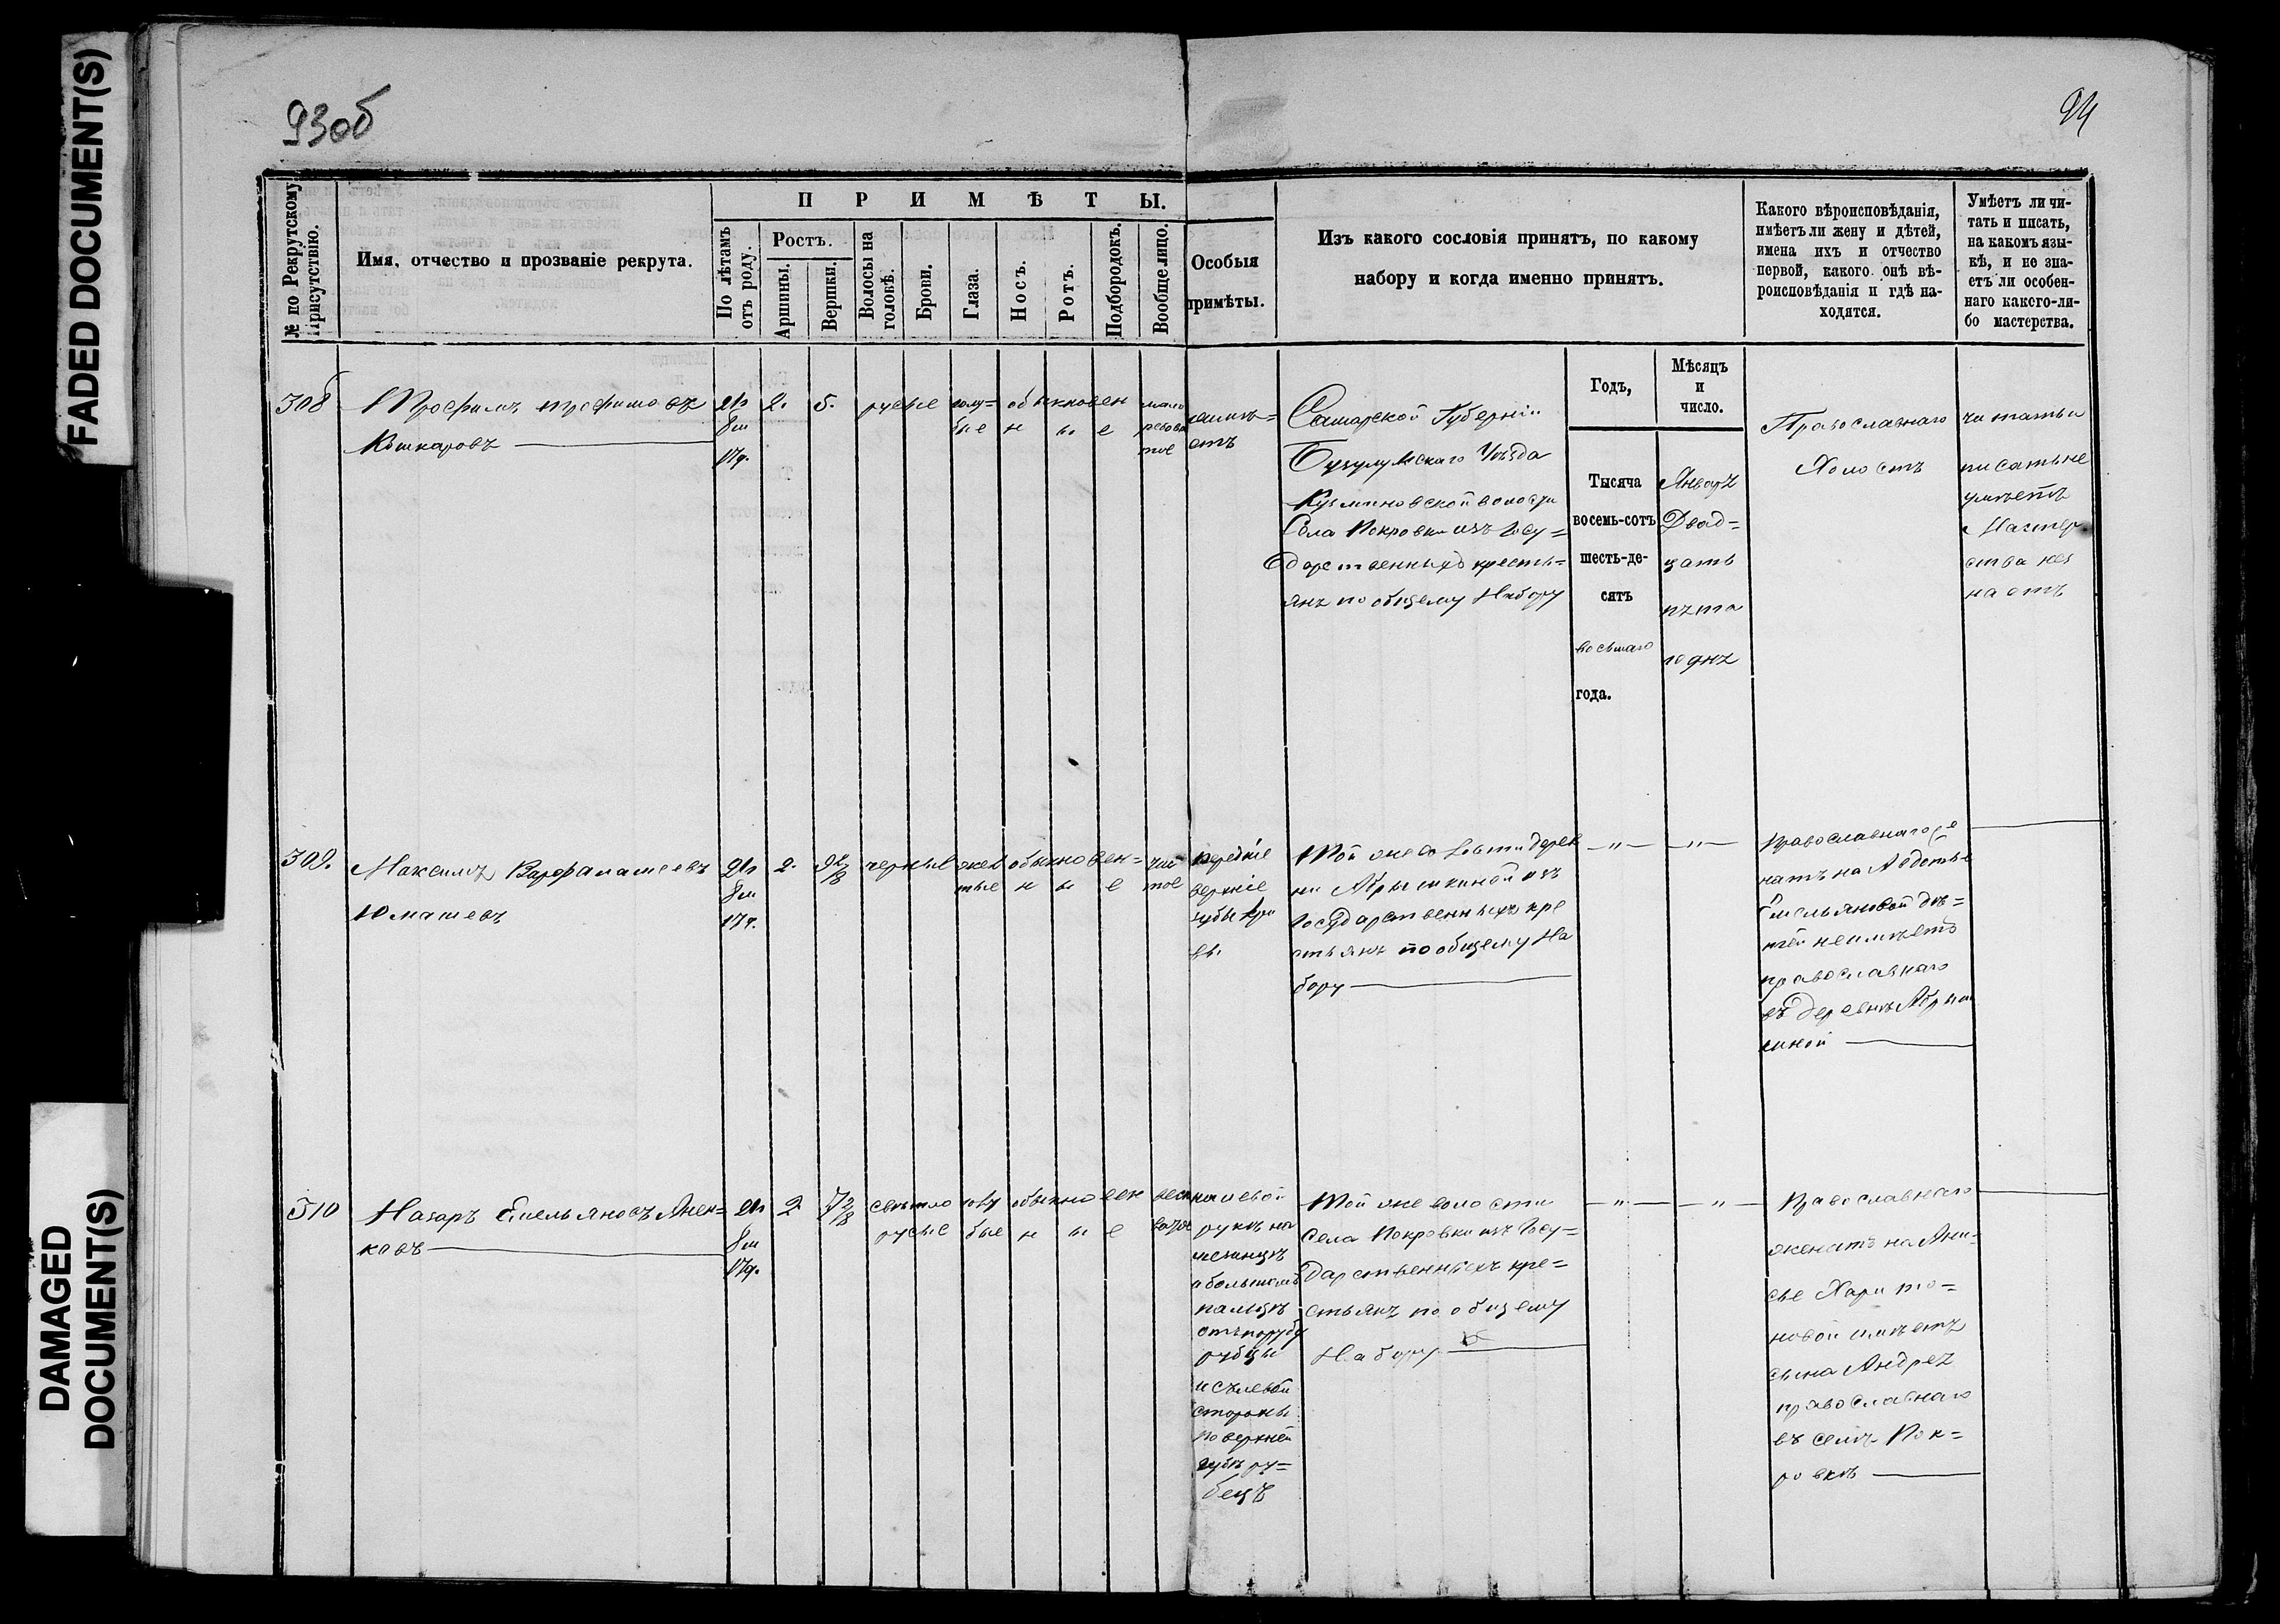 FADED DOCUMENT(S)
DAMAGED
DOCUMENT(S)
93об
94
№ по Рекрутскому
Присутствію.
Имя, отчество и прозваніе рекрута.
ПРИМѢТЫ.
По лѣтамъ
отъ роду.
Ростъ.
Аршины.
Вершки.
Волосы на
головѣ.
Брови.
Глаза.
Носъ.
Ротъ.
Подбородокъ.
Вообще лицо.
Особыя
примѣты.
Изъ какого сословія принятъ, по какому
набору и когда именно принятъ.
Какого вѣроисповѣданія,
имѣетъ ли жену и дѣтей,
имена ихъ и отчество
первой, какого онѣ вѣ-
роисповѣданія и гдѣ на-
ходятся.
Умѣетъ ли чи-
тать и писать,
на какомъ язы-
кѣ, и не зна-
етъ ли особен-
наго какого-ли-
бо мастерства.
308
Трофимъ Трофимовъ
Кошкаровъ
2.
5.
русые
голу=
бые
обыкновен
н ы е
мало
рябова
тое
неимѣ=
етъ
Самарской Губерніи
Бузулукскаго Уѣзда
Кузминовской волости
Села Покровки изъ Госу=
дарственныхъ кресть=
янъ по общему Набору
Годъ,
Тысяча
восемь-сотъ
шесть-де-
сятъ
восьмаго
года.
Мѣсяцъ
и
число.
Января
Двад=
цать
пята
го дня
Православнаго
Холостъ
читать и
писать не
умѣетъ
Мастер
ства не з
наетъ
309.
Максимъ Варфаламеевъ
Юмашевъ
2.
9 2/8
черные
жел
тые
обыкновен=
н ы е
чис
тое
передніе
верхніе
зубы кри
вы.
Той же волости дерев
ни Абрышкиной изъ
Государственныхъ кре
стьянъ по общему На
бору
Православнаго же
натъ на Авдотье
Емельяновой дѣ=
тей неимѣетъ
православнаго
въ деревнѣ Абрыш
киной
310
Назаръ Емельяновъ Янен=
ковъ
2
7 2/8
свѣтло
русые
голу
бые
обыкновен
н ы е
на левой
рукѣ на
мезинцѣ
а большомъ
пальцѣ
отъ порубу
рубцы
и съ левой
стороны
по верхней
губѣ ру=
бецъ
Той же волости
Села Покровки изъ Госу=
дарственныхъ кре=
стьянъ по общему
Набору
Православнаго
женатъ на Ани=
сье Харито=
новой имѣетъ
сына Андрея
православнаго
въ селѣ Пок=
ровкѣ